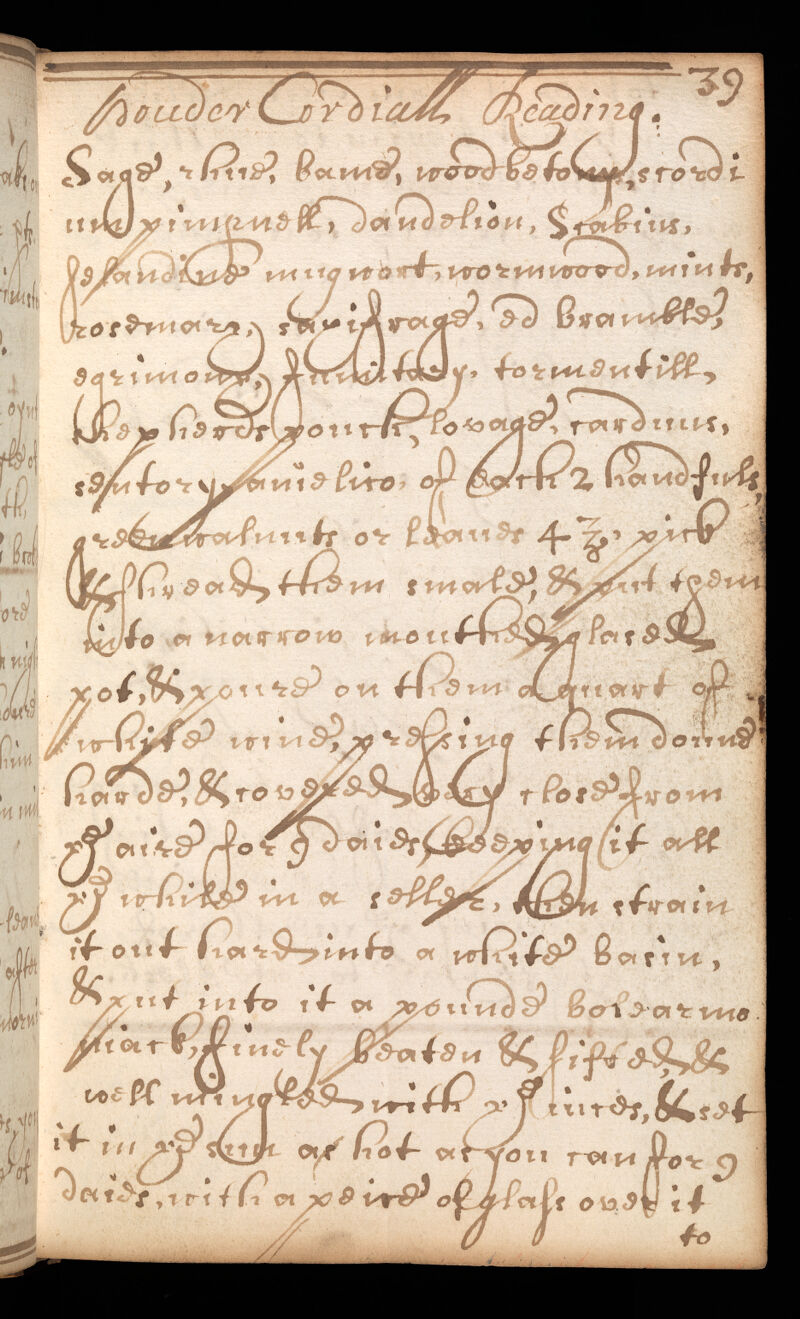 39
Pouder Cordiall Reading.
Sage, rhue, bame, woodbetony, scordi
um pimpnell, dandelion, Scabius,
selandine mugwort, wormwood, mints,
rosemary, saxifrage, ed bramble,
egrimony, fumitary, tormentill,
shepherds pouch, lovage, carduus,
sentory, anielico, of each 2 handfuls,
green walnuts or leaues 4 ℥, pick
& shread them smale, & put them
into a narrow mouthed glased
pot, & poure on them a quart of
white wine, pressing them doune
harde, & covered very close from
ye aire for 9 daies, keeping it all
ye while in a seller, then strain
it out hard into a white basin,
& put into it a pounde bolearmo
niack, finely beaten & sifted, &
well mingled with ye iuces, & set
it in ye sun as hot as you can for 9
daies, with a peice of glass over it
to